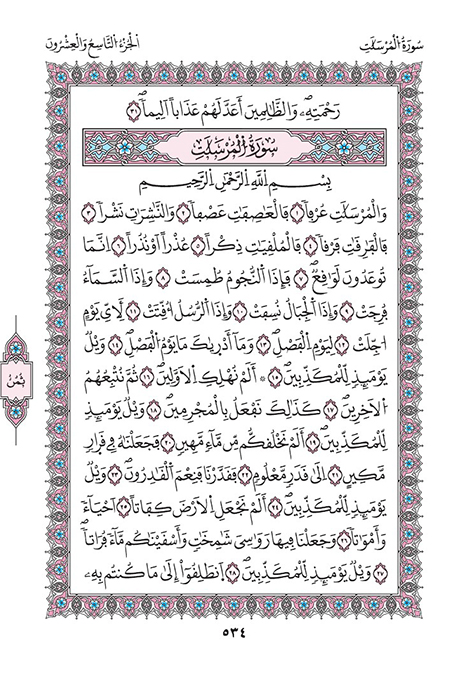 سُورَةُ الْمُرْسَلَٰتِ الْجُزْءُ التَّاسِعُ وَالْعِشْرُونَ
رَحْمَتِهِۦ وَالظَّٰلِمِينَ أَعَدَّ لَهُمْ عَذَاباً أَلِيماًۖ ٣١
سُورَةُ الْمُرْسَلَٰتِ
بِسْمِ اللَّهِ الرَّحْمَٰنِ الرَّحِيمِ
وَالْمُرْسَلَٰتِ عُرْفاً ١ فَالْعَٰصِفَٰتِ عَصْفاً ٢ وَالنَّٰشِرَٰتِ نَشْراً ٣
فَالْفَٰرِقَٰتِ فَرْقاً ٤ فَالْمُلْقِيَٰتِ ذِكْراً ٥ عُذْراً أَوْ نُذُراً ٦ إِنَّمَا
تُوعَدُونَ لَوَٰقِعٌۖ ٧ فَإِذَا النُّجُومُ طُمِسَتْ ٨ وَإِذَا السَّمَآءُ
فُرِجَتْ ٩ وَإِذَا الْجِبَالُ نُسِفَتْ ١٠ وَإِذَا الرُّسُلُ أُقِّتَتْ ١١ لِأَيِّ يَوْمٍ
أُجِّلَتْ ١٢ لِيَوْمِ الْفَصْلِۖ ١٣ وَمَآ أَدْرَىٰكَ مَا يَوْمُ الْفَصْلِۖ ١٤ وَيْلٌ
يَوْمَئِذٍ لِّلْمُكَذِّبِينَۖ ١٥ أَلَمْ نُهْلِكِ الْأَوَّلِينَۖ ١٦ ثُمَّ نُتْبِعُهُمُ
الْأَخِرِينَۖ ١٧ كَذَٰلِكَ نَفْعَلُ بِالْمُجْرِمِينَۖ ١٨ وَيْلٌ يَوْمَئِذٍ
لِّلْمُكَذِّبِينَۖ ١٩ أَلَمْ نَخْلُقكُّم مِّن مَّآءٍ مَّهِينٍ ٢٠ فَجَعَلْنَٰهُ فِي قَرَارٍ
مَّكِينٍ ٢١ إِلَىٰ قَدَرٍ مَّعْلُومٍ ٢٢ فَقَدَّرْنَا فَنِعْمَ الْقَٰدِرُونَۖ ٢٣ وَيْلٌ
يَوْمَئِذٍ لِّلْمُكَذِّبِينَۖ ٢٤ أَلَمْ نَجْعَلِ الْأَرْضَ كِفَاتاً ٢٥ أَحْيَآءً
وَأَمْوَٰتاًۖ ٢٦ وَجَعَلْنَا فِيهَا رَوَٰسِيَ شَٰمِخَٰتٍ وَأَسْقَيْنَٰكُم مَّآءً فُرَاتاًۖ
٢٧ وَيْلٌ يَوْمَئِذٍ لِّلْمُكَذِّبِينَۖ ٢٨ انطَلِقُوٓاْ إِلَىٰ مَا كُنتُم بِهِۦ
ثُمُنْ
٥٣٤